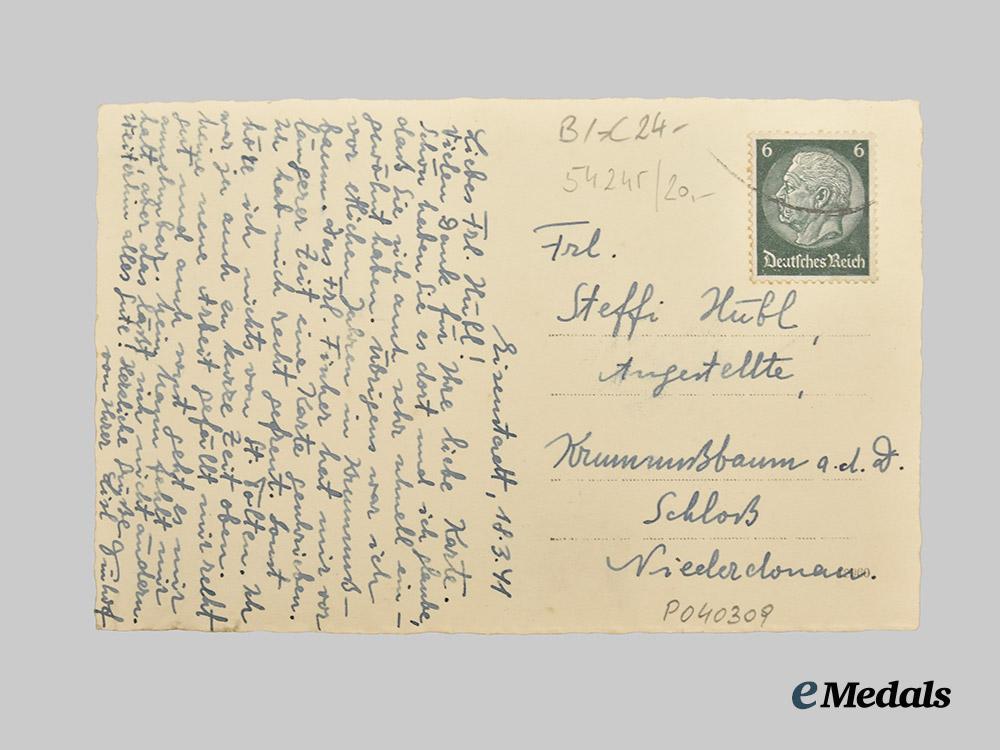 Eisenstadt, 18.3.41
Liebes Frl. Hübl!
Vielen Dank für Ihre liebe Karte.
Schön haben Sie es dort und ich glaube,
daß Sie sich auch sehr schnell ein-
gewöhnt haben. Übrigens war ich
vor etlichen Jahren in Krummnuß-
baum. Das Frl. Fischer hat mir vor
längerer Zeit eine Karte geschrieben.
Ich hab mich recht gefreut. Sonst
höre ich nichts von St. Pölten. Ich
war ja auch zu kurze Zeit oben.
Meine neue Arbeit gefällt mir recht
gut und auch sonst geht es mir
annehmbar. Mein fehlt mir
halt, aber das läßt sich nicht ändern.
Weiterhin alles Gute! Herzliche Grüße
von Ihrer Lisl
B/-L 24-
54245/20,-
6 6
Deutsches Reich
Frl.
Steffi Hübl,
Angestellte,
Krummnußbaum a.d.D.
Schloß
Niederdonau.
P040309
eMedals